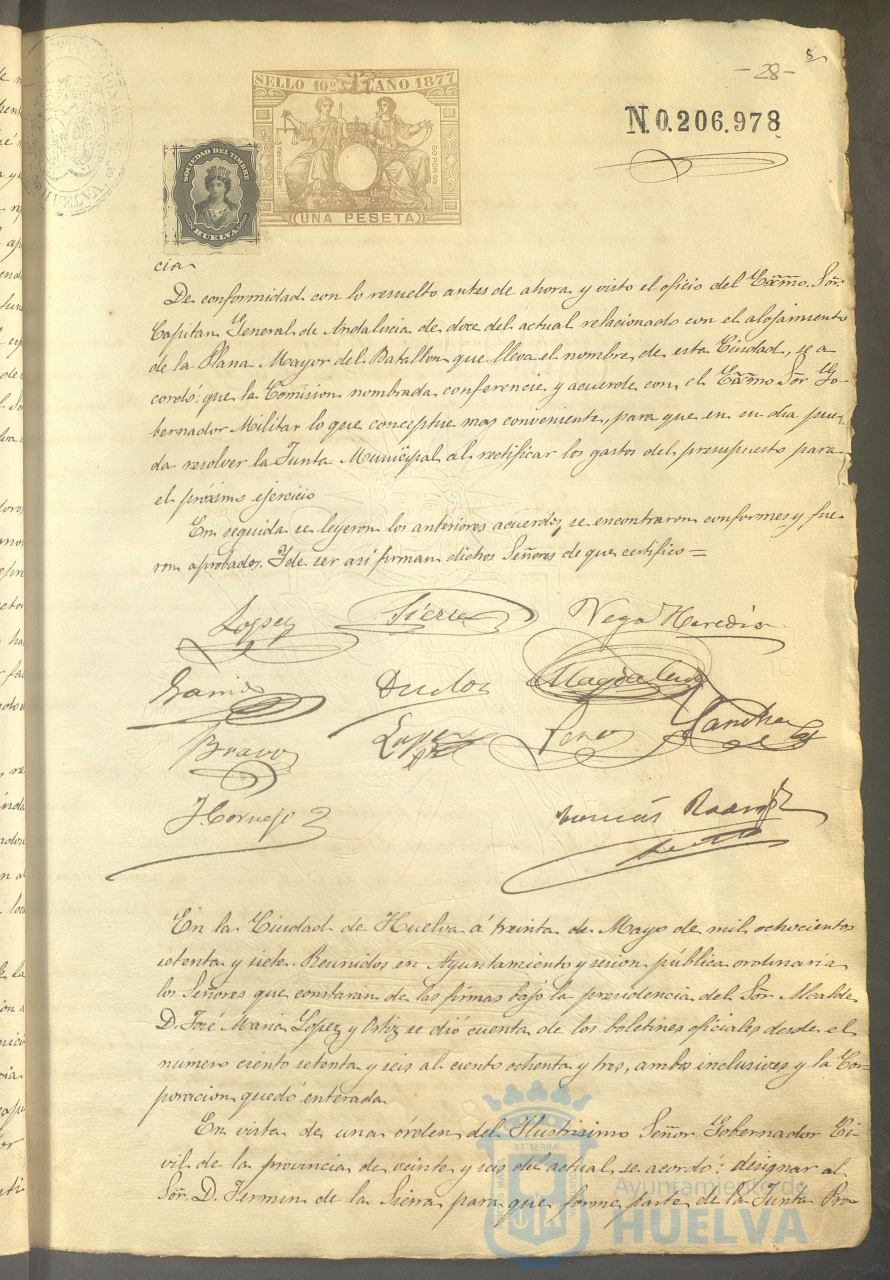 8
-28-
SELLO 10º AÑO 1877
N.0.206.978
SOCIEDAD DEL TIMBRE
HUELVA
UNA PESETA
cia
De conformidad con lo resuelto antes de ahora y visto el oficio del Exmo. Sor.
Capitan General de Andalucia de doce del actual relacionado con el alojamiento
de la Plana Mayor del Batallon que lleva el nombre de esta Ciudad, se a
cordó: que la Comision nombrada conferencie y acuerde con el Exmo Sor Go-
bernador Militar lo que conceptue mas conveniente, para que en su dia pue-
da resolver la Junta Municipal al rectificar los gastos del presupuesto para
el próximo ejercicio
En seguida se leyeron los anteriores acuerdos, se encontraron conformes y fue-
ron aprobados. I de ser asi firman dichos Señores de que certifico =
Lopez Sierra Vega Heredia
Garrido Duclos Magdalena
Bravo Lopez Perez Sanchez
J. Cornejo Tomás
En la Ciudad de Huelva á treinta de Mayo de mil ochocientos
setenta y siete. Reunidos en Ayuntamiento y sesion pública ordinaria
los Señores que constarán de las firmas bajo la presidencia del Sor Alcalde
D. José Maria Lopez y Ortiz se dió cuenta de los boletines oficiales desde el
numero ciento setenta y seis al ciento ochenta y tres, ambos inclusives y la Cor-
poracion quedó enterada
En vista de una órden del Ilustrisimo Señor Gobernador Ci-
vil de la provincia de veinte y seis del actual, se acordó: designar al
Sor. D. Fermin de la Sierra para que forme parte de la Junta Pro-
Ayuntamiento de
HUELVA